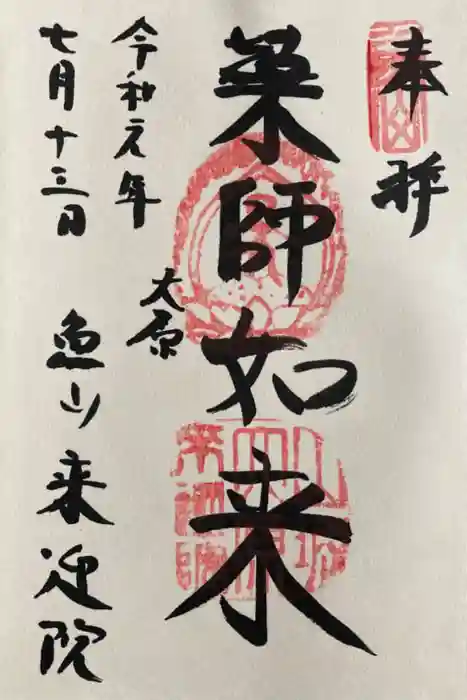 奉拝
薬師如来
大原
令和元年
七月十三日
魚山来迎院